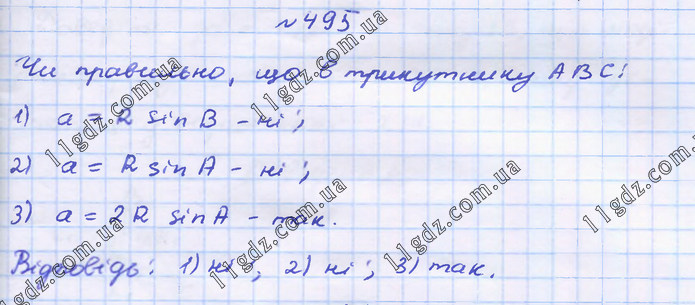 №495
Чи правильно, що в трикутнику ABC:
1) a = R sin B - ні;
2) a = R sin A - ні;
3) a = 2R sin A - так.
Відповідь: 1) ні; 2) ні; 3) так.
11gdz.com.ua
11gdz.com.ua
11gdz.com.ua
11gdz.com.ua
11gdz.com.ua
11gdz.com.ua
11gdz.com.ua